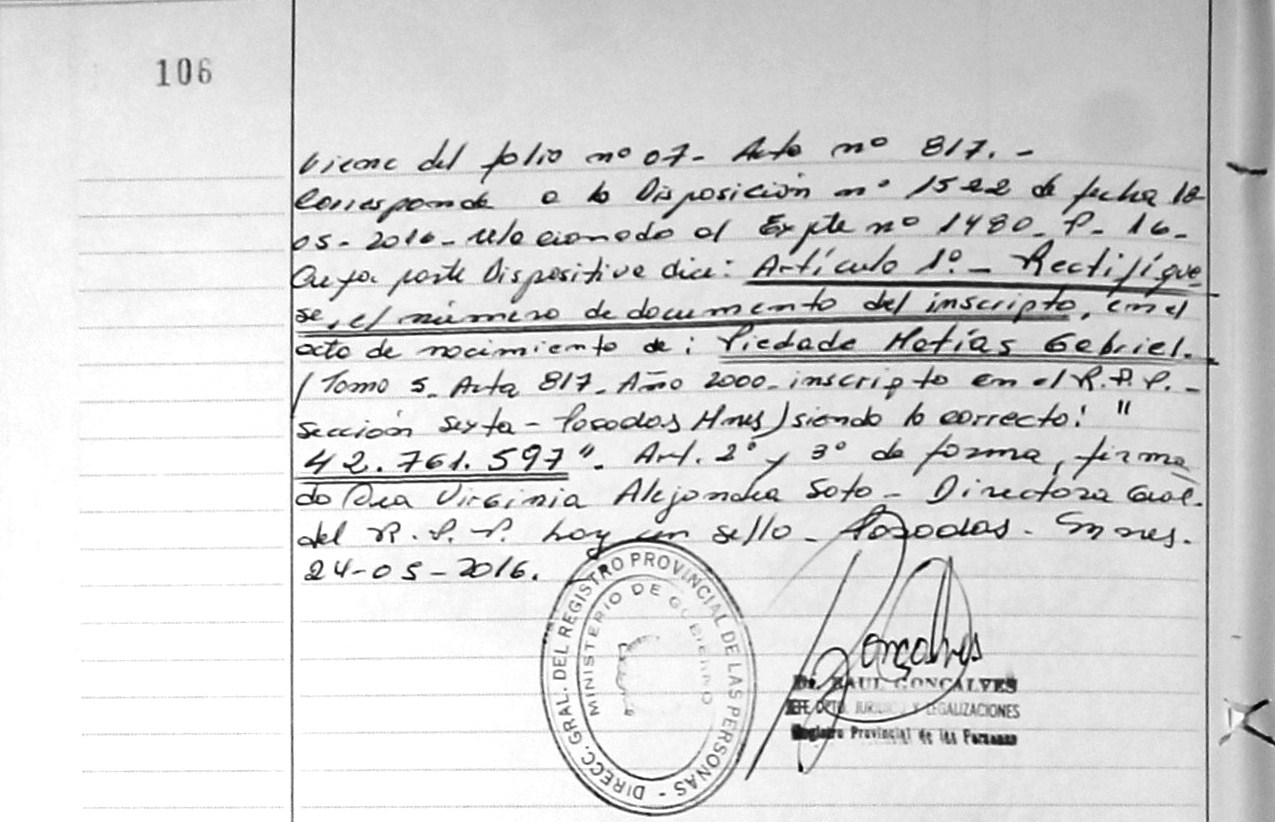 106
Viene del folio nº 07- Acta nº 817.-
Corresponde a la Disposición nº 1522 de fecha 12
05-2016- relacionado al Expte nº 1480- P- 16-
Cuya parte Dispositiva dice: Artículo 1º.- Rectifíque-
se, el número de documento del inscripto, en el
acta de nacimiento de: Piedade Matías Gabriel.
/Tomo 5- Acta 817- Año 2000- inscripto en el R.P.P.-
sección sexta- Posadas Mnes) siendo lo correcto: "
42.761.597". Art. 2º y 3º de forma, firma
do Dra Virginia Alejandra Soto- Directora Gral.
del R.P.P. hay un sello- Posadas- Mnes.
24-05-2016.
DIRECC. GRAL. DEL REGISTRO PROVINCIAL DE LAS PERSONAS -
MINISTERIO DE GOBIERNO
Gonçalves
Dr. RAUL GONCALVES
JEFE DPTO. JURIDICO Y LEGALIZACIONES
Registro Provincial de las Personas